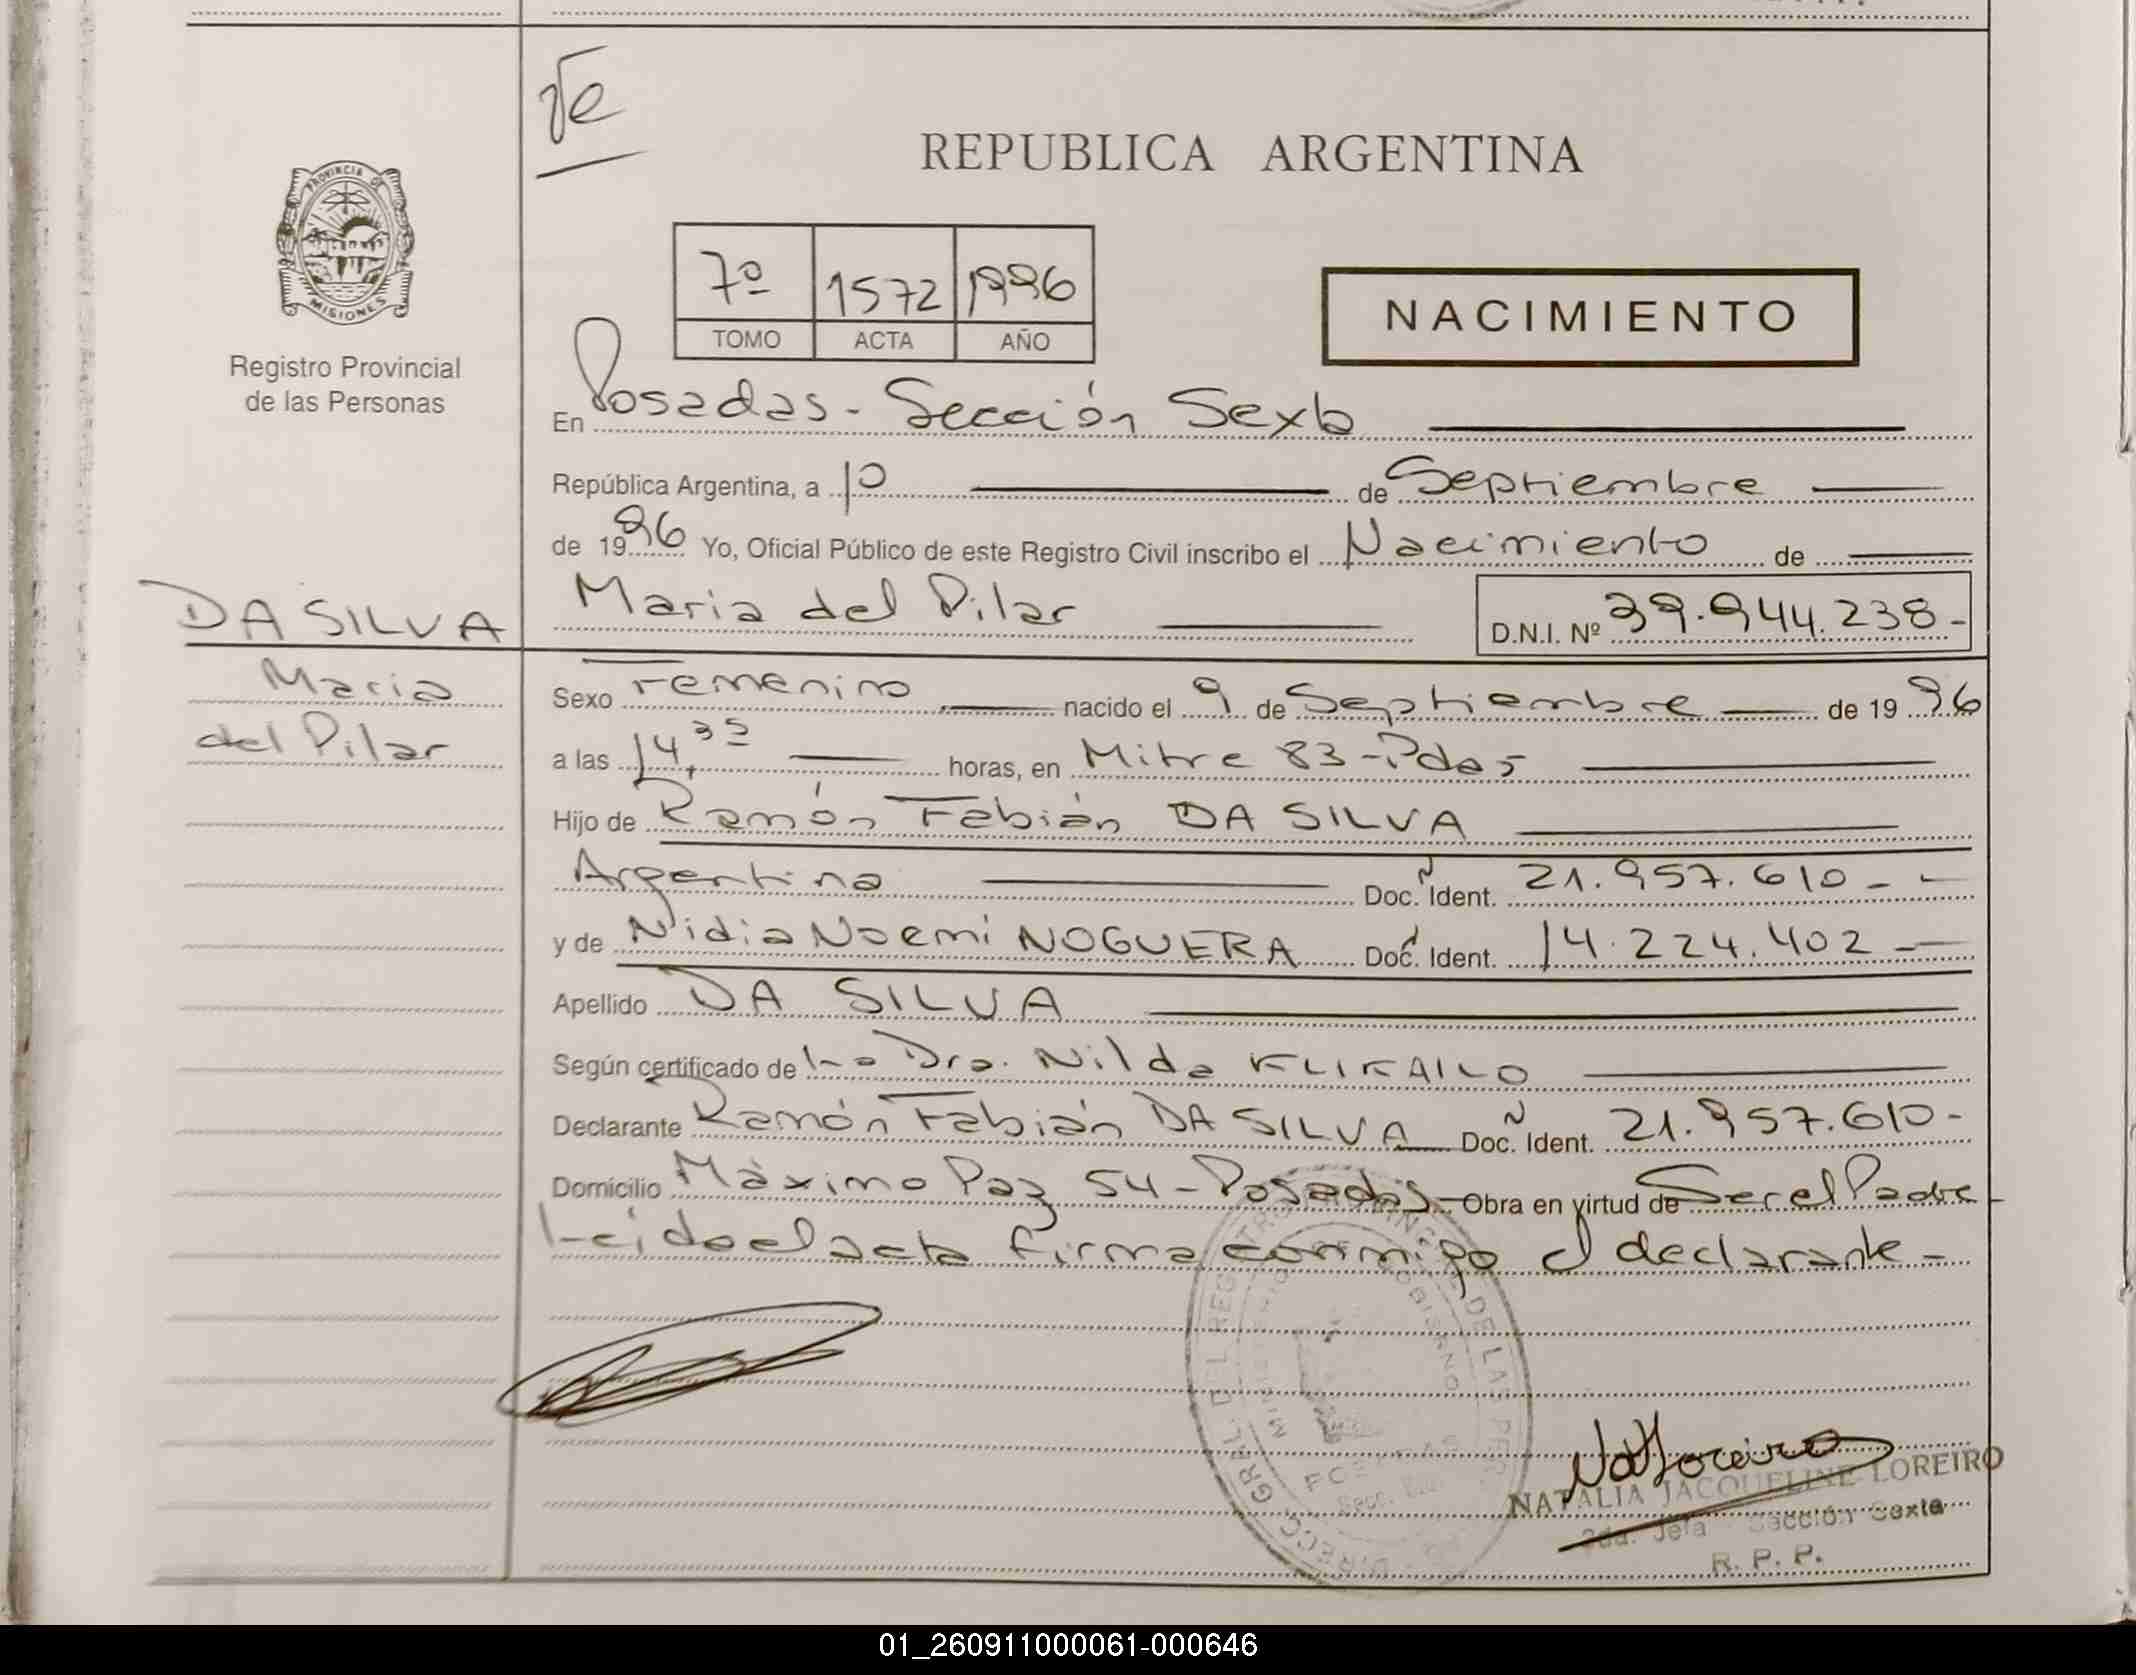 Ve
PROVINCIA DE
MISIONES
Registro Provincial
de las Personas
REPUBLICA ARGENTINA
7º 1572 1996
TOMO ACTA AÑO
NACIMIENTO
En Posadas - Sección Sexta
República Argentina, a 10 de Septiembre
de 1996 Yo, Oficial Público de este Registro Civil inscribo el Nacimiento de
DA SILVA
Maria
del Pilar
Maria del Pilar D.N.I. Nº 39.944.238-
Sexo Femenino nacido el 9 de Septiembre de 1996
a las 14,35 horas, en Mitre 83-Pdas
Hijo de Ramón Fabián DA SILVA
Argentina Doc. Ident. 21.957.610--
y de Nidia Noemi NOGUERA Doc. Ident. 14.224.402-
Apellido DA SILVA
Según certificado de La Dra. Nilda KLIKAILO
Declarante Ramón Fabián DA SILVA Doc. Ident. 21.957.610-
Domicilio Máximo Paz 54-Posadas- Obra en virtud de Ser el Padre-
Leido el acta firma conmigo el declarante-
DIRECC. GRAL. DEL REG DE LAS PER
NATALIA JACQUELINE LOREIRO
2da. Jefa Sección Sexta
R. P. P.
01_260911000061-000646